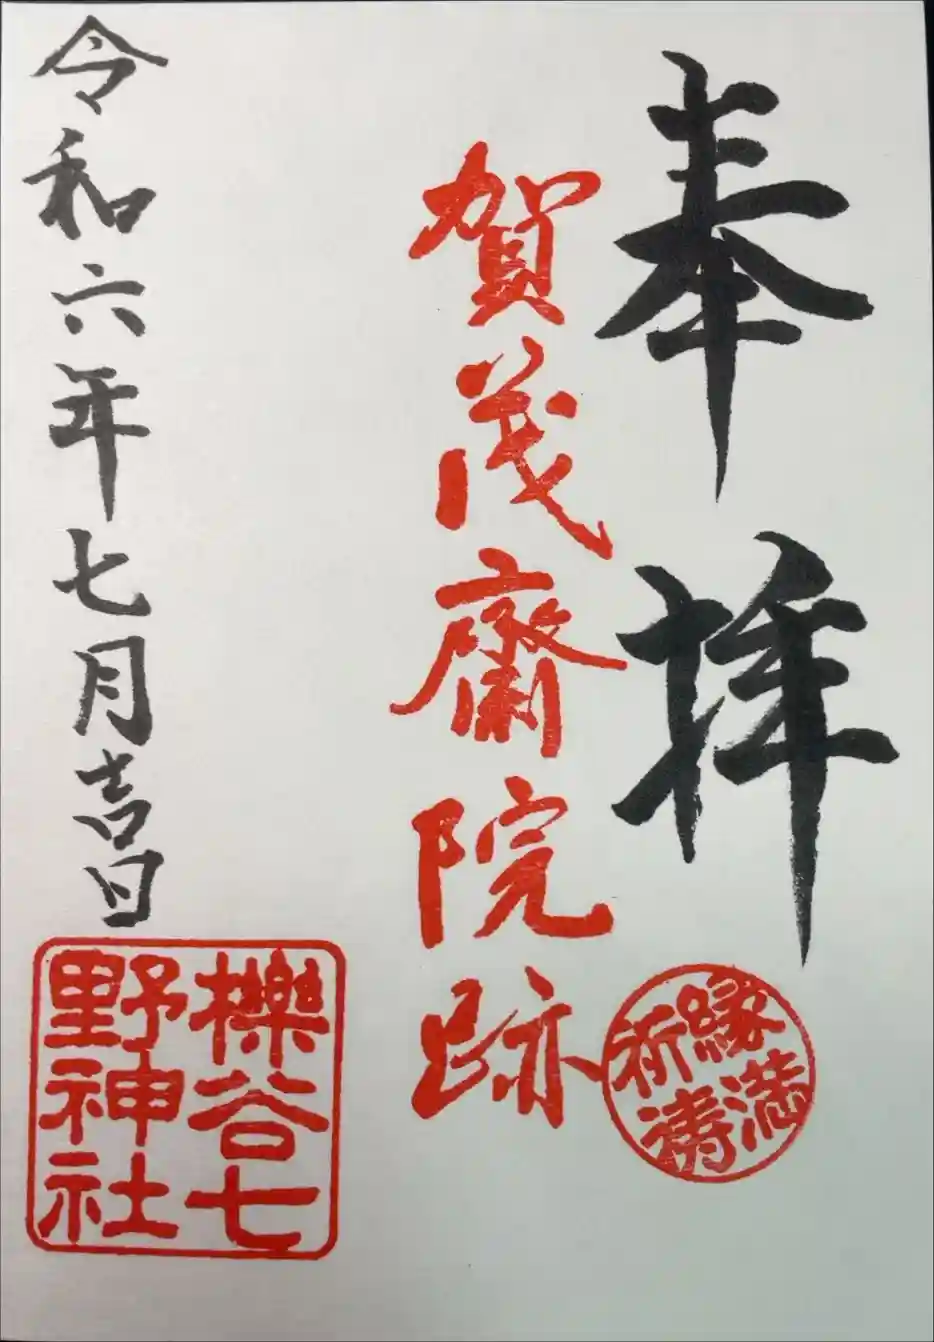 奉拝
縁満
祈祷
賀茂齋院跡
令和六年七月吉日
櫟谷七
野神社